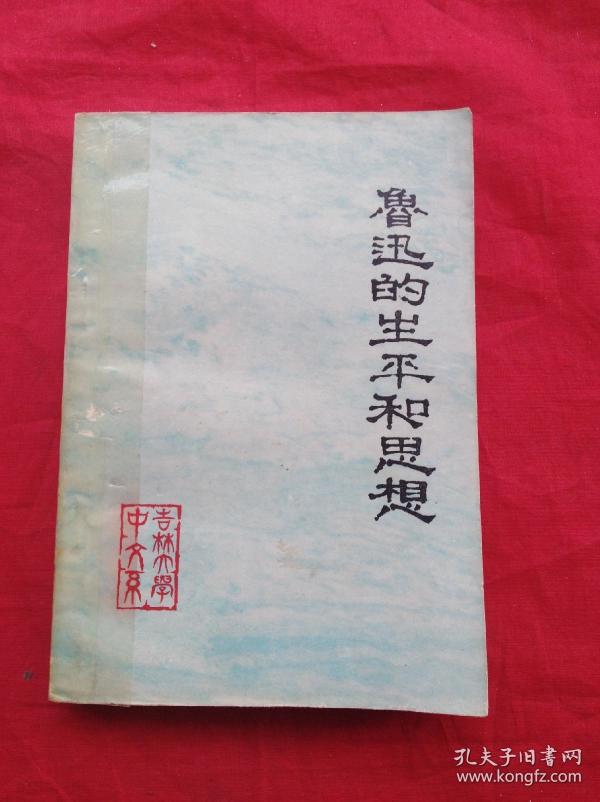 魯迅的生平和思想
吉林大學
中文系
孔夫子旧書网
www.kongfz.com